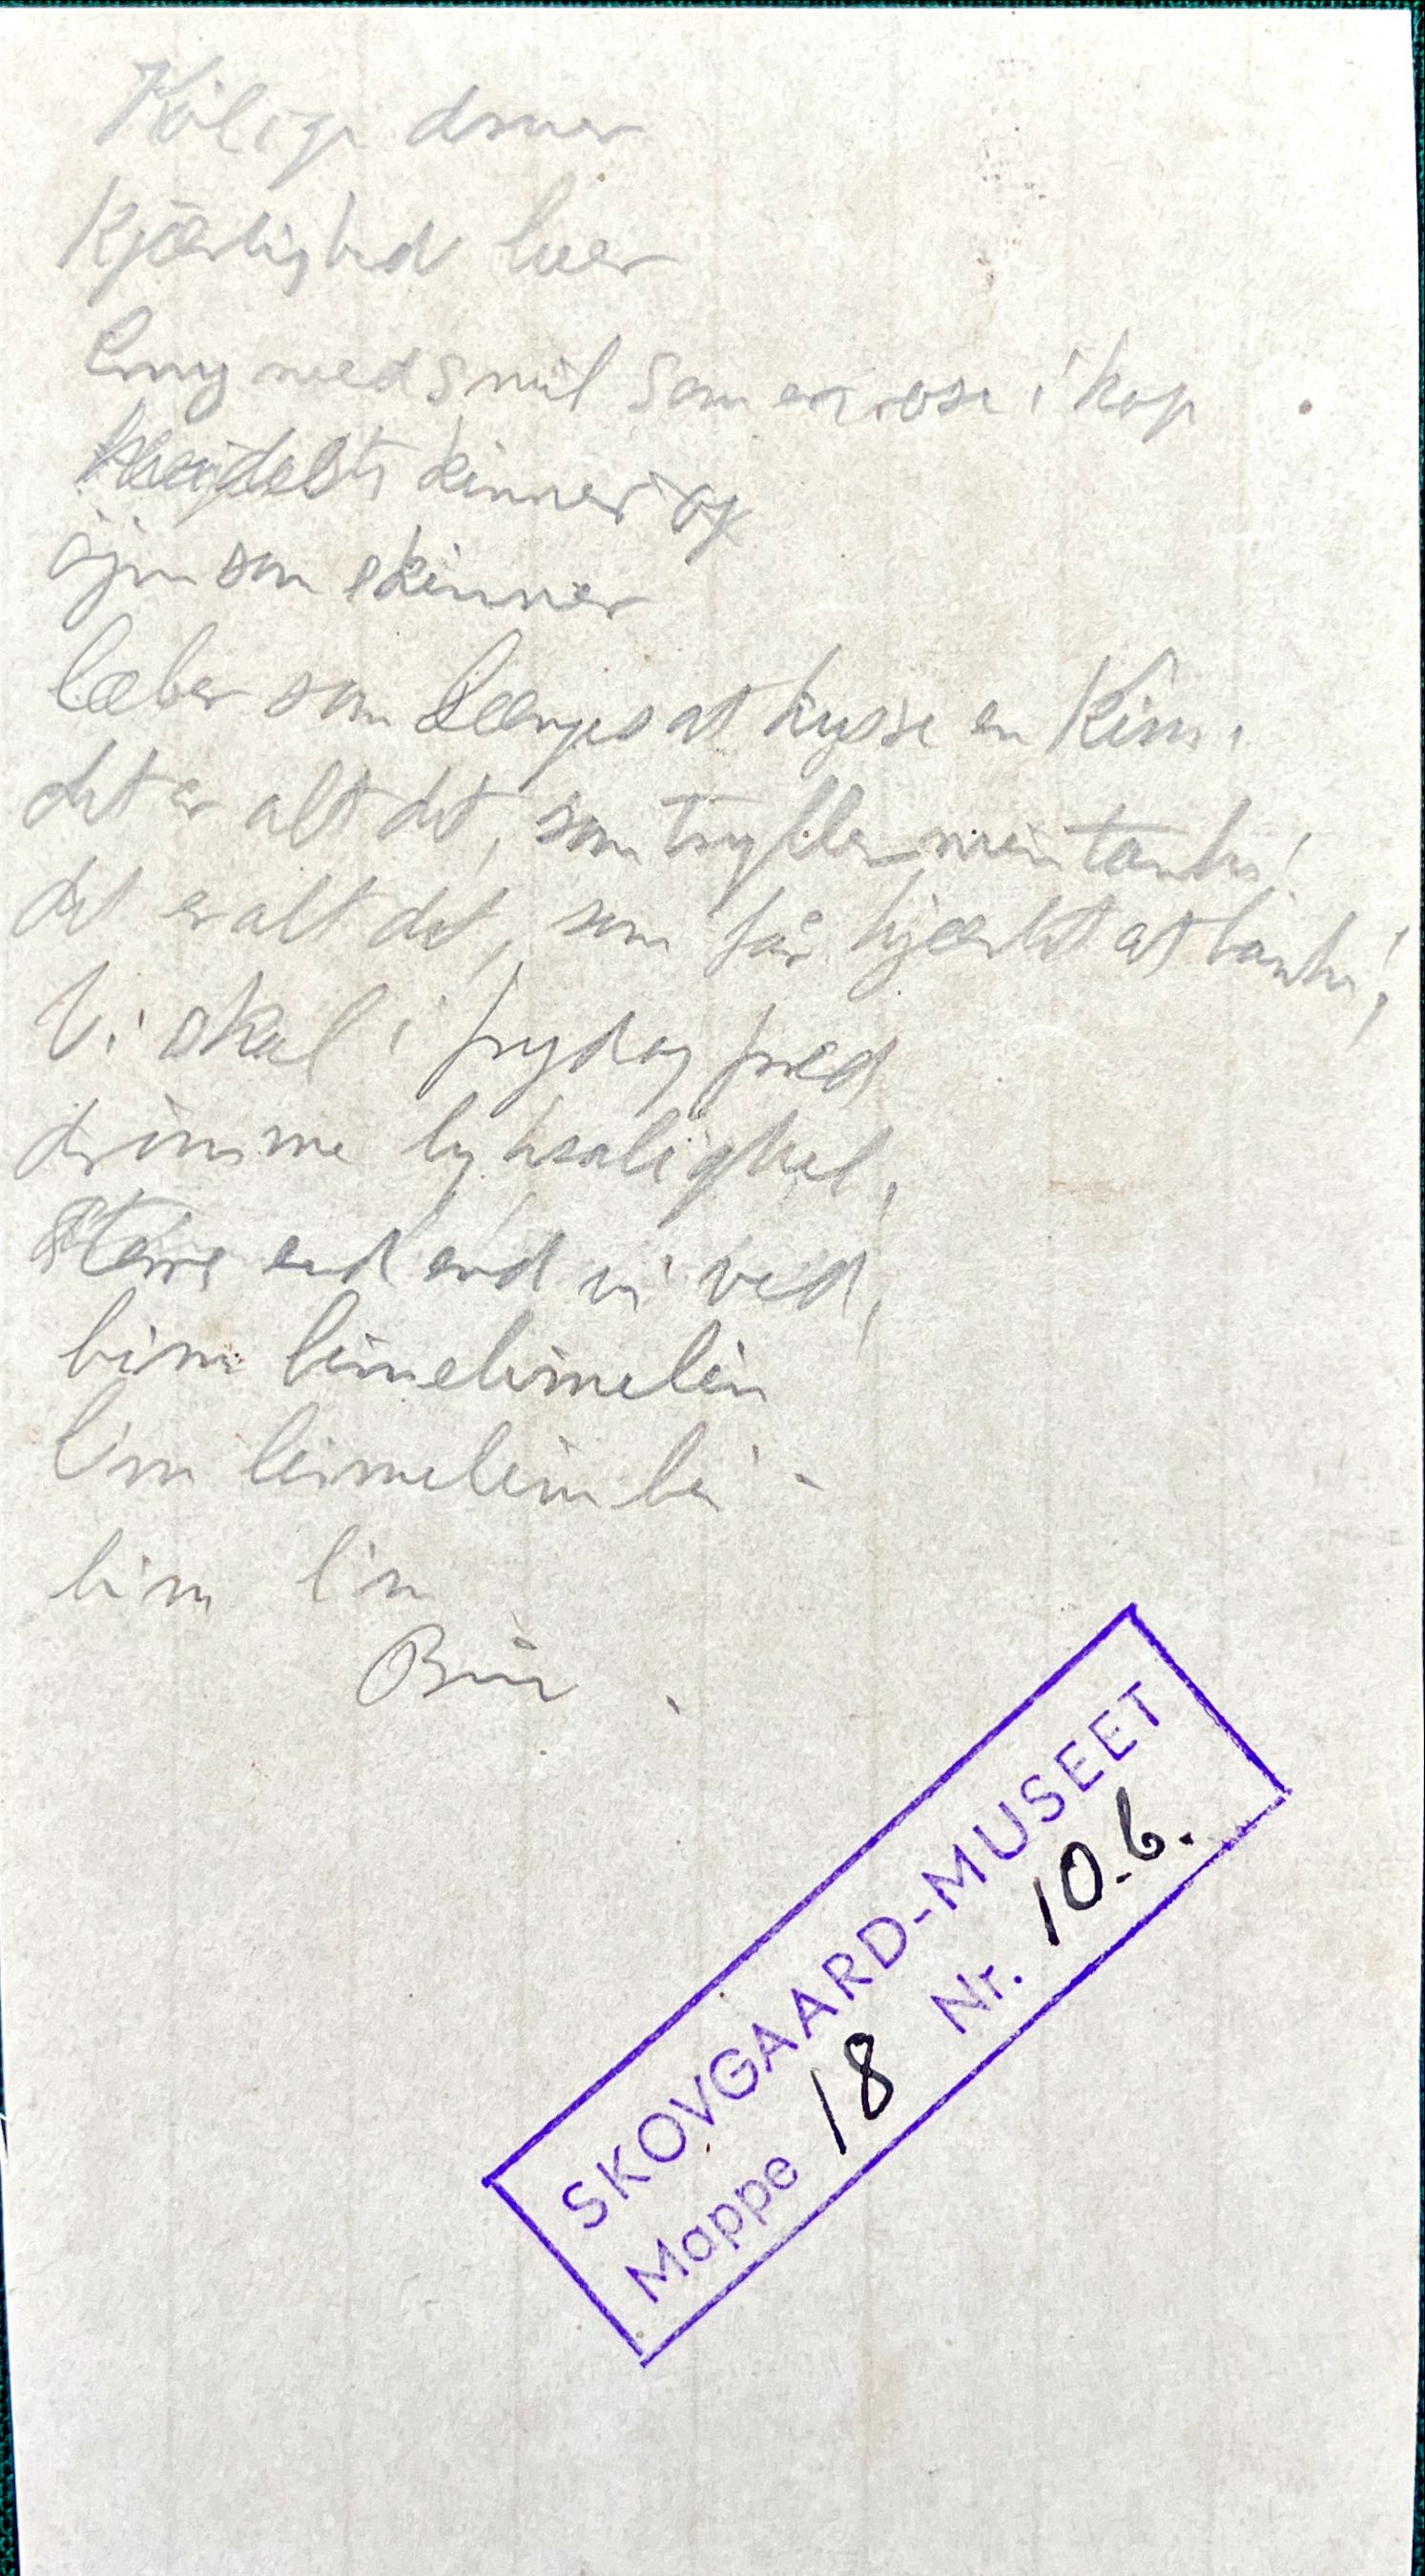 Kølige druer
Kjærlighed luer
smil som en rose i kop
kinner og
öjne som skinner
læber som længes at kysse en Kind.
det er alt det, som tryller min tanke!
det er alt det, som får hjærtet at banke!
Vi skal i fryd og fred
drömme lyksalighed,
större end end vi ved,
bim bimelimelim
bim bimelim bim -
bim lim
Bim.
SKOVGAARD-MUSEET
Mappe 18 Nr. 10.6.